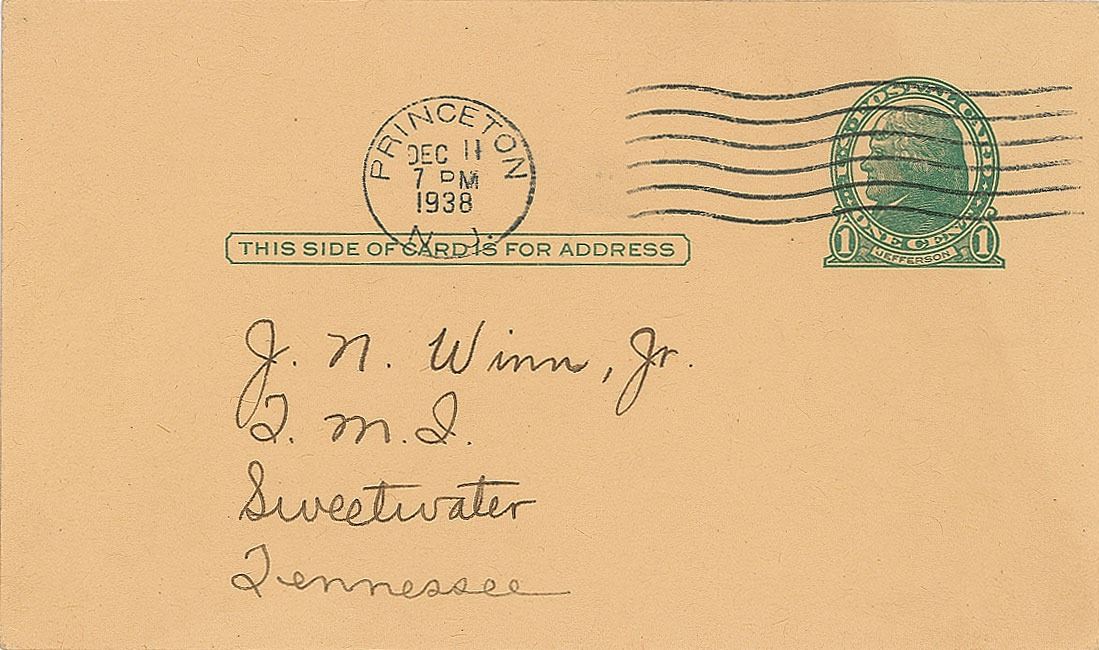 PRINCETON
DEC 11
7 PM
1938
N. J.
THIS SIDE OF CARD IS FOR ADDRESS
U.S. POSTAL CARD
ONE CENT
1 JEFFERSON 1
J. N. Winn, Jr.
T. M. I.
Sweetwater
Tennessee